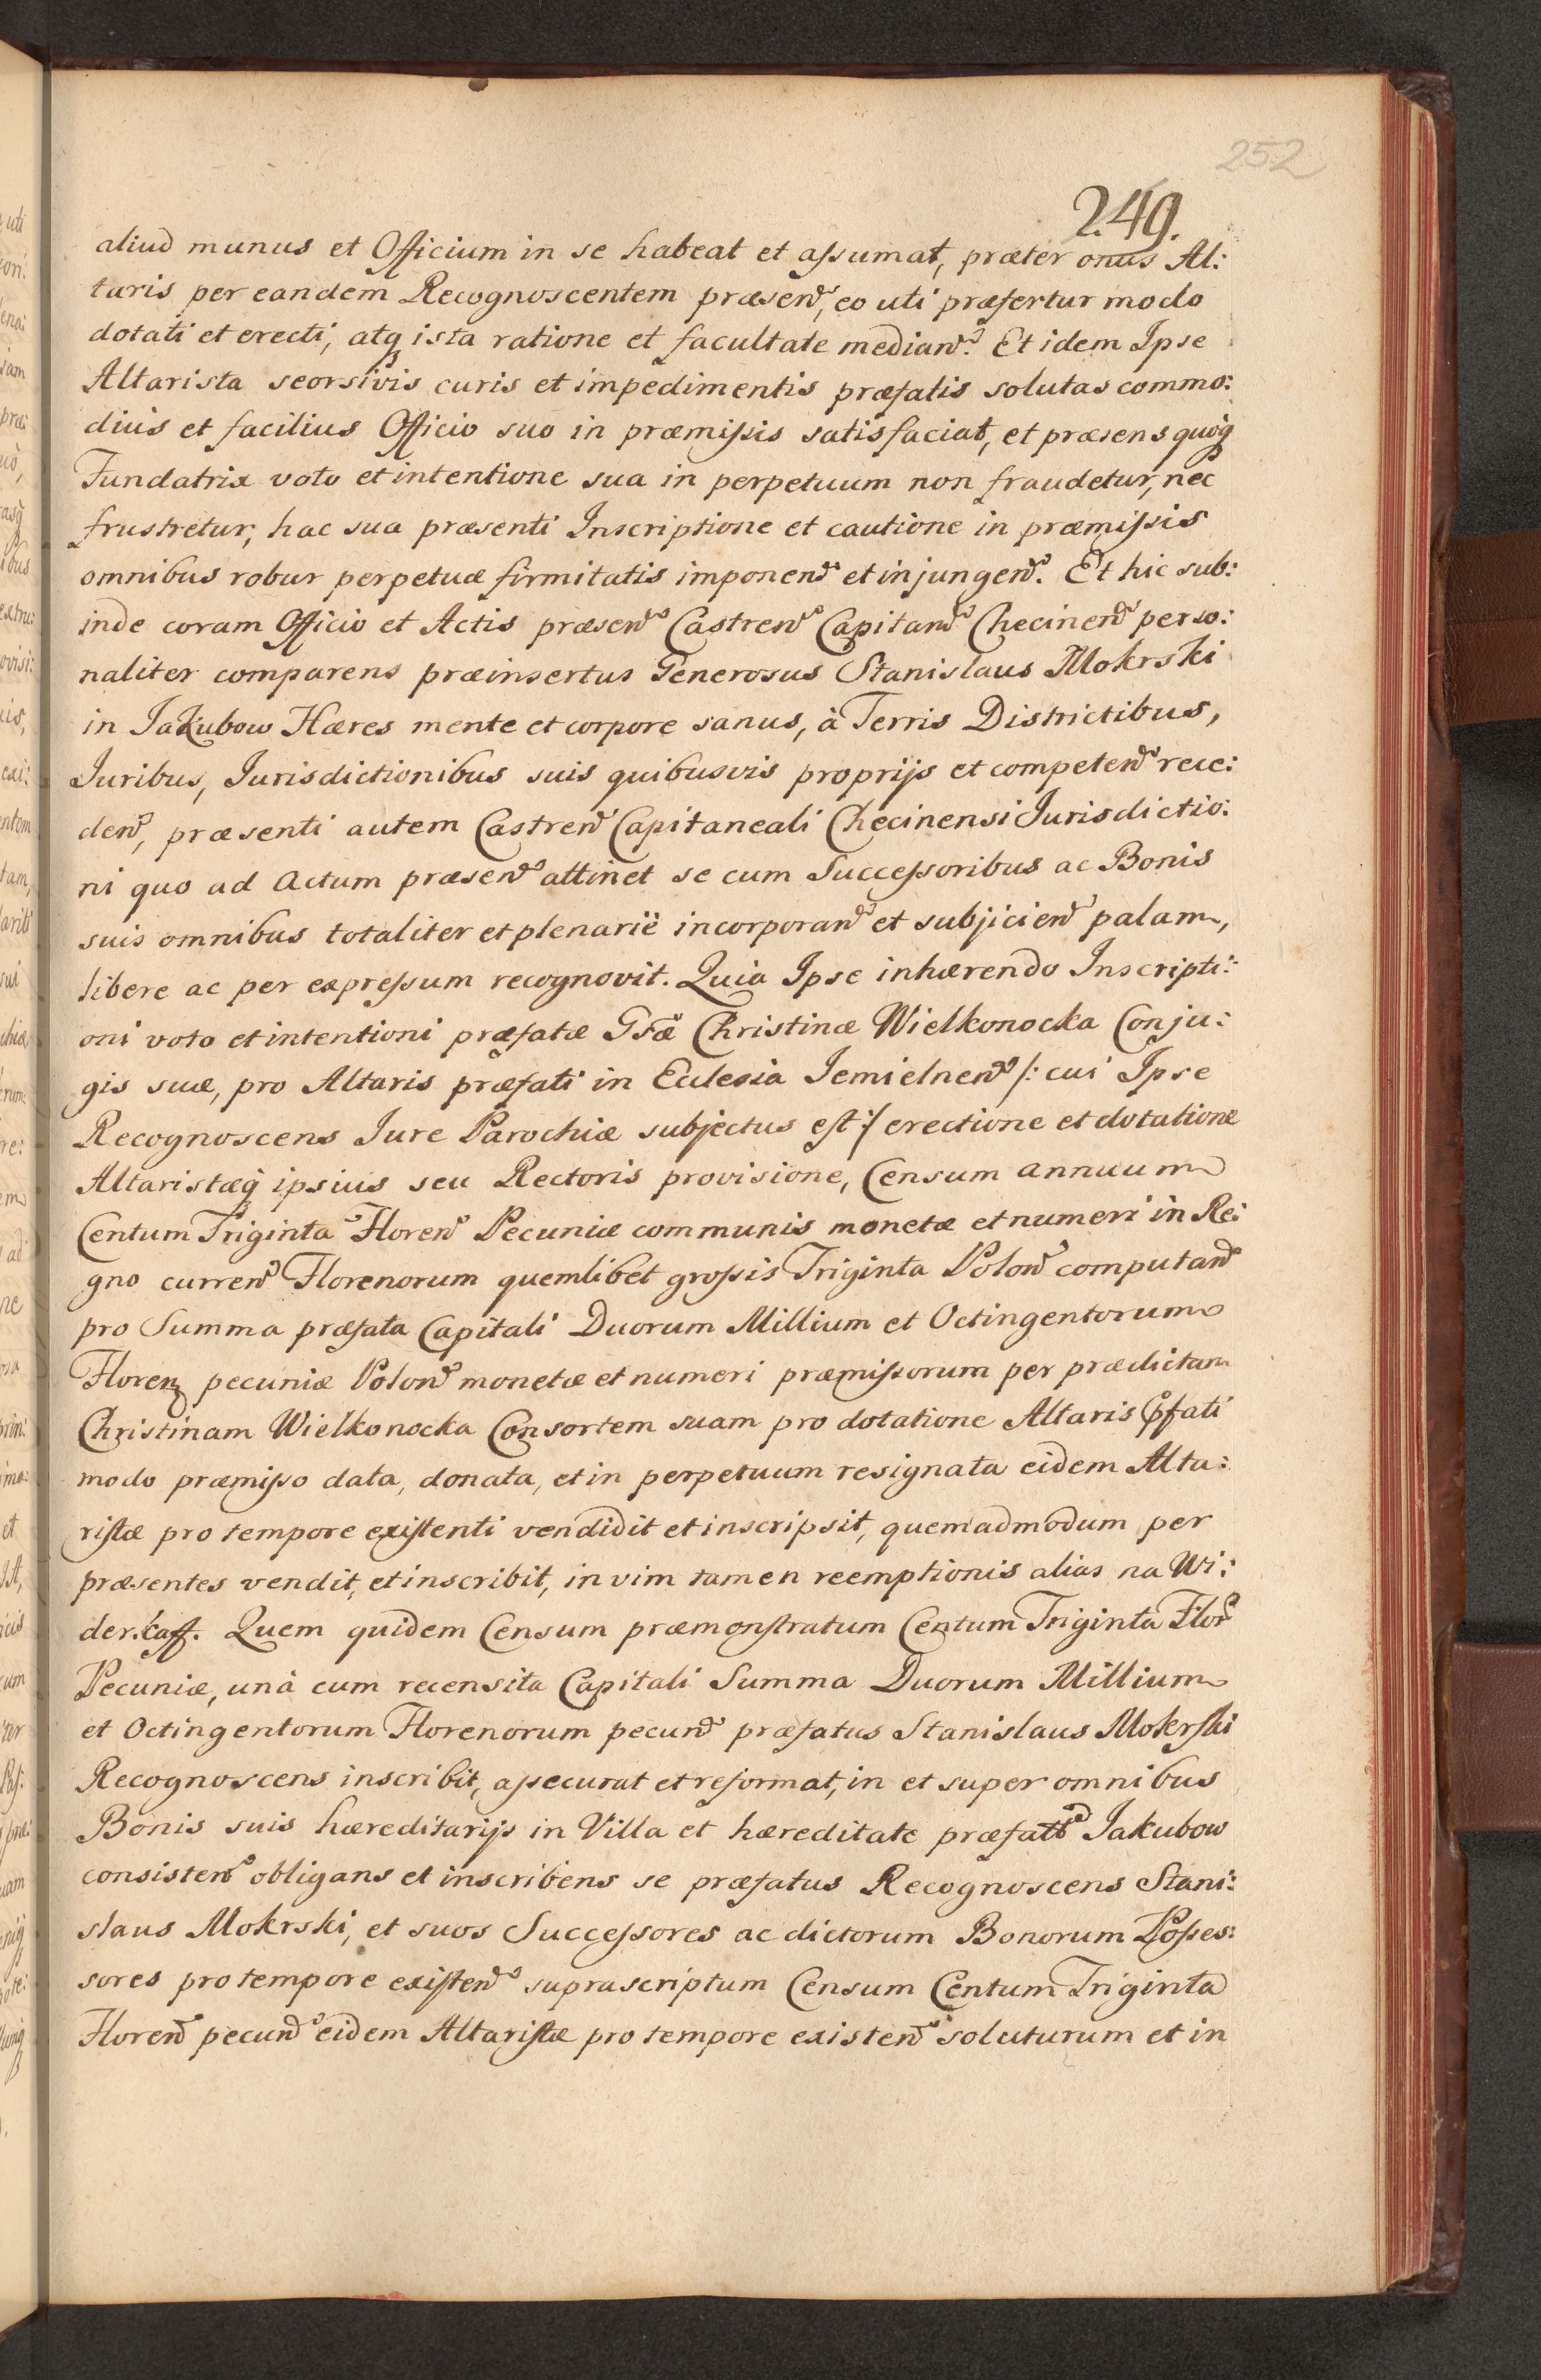 252
249.
aliud munus et Officium in se habeat et assumat, præter onus Al:
taris per eandem Recognoscentem præsen, eo uti præfertur modo
dotati et erecti, atq ista ratione et facultate median. Et idem Ipse
Altarista seorsivis curis et impedimentis præfatis solutas commo:
dius et facilius Officio suo in præmissis satisfaciat, et præsens quoq
Fundatrix voto et intentione sua in perpetuum non fraudetur, nec
frustretur, hac sua præsenti Inscriptione et cautione in præmissis
omnibus robur perpetuæ firmitatis imponen et injungen. Et hic sub:
inde coram Officio et Actis præsen Castren Capitan Checinen perso:
naliter comparens præinsertus Generosus Stanislaus Mokrski
in Jakubow Hæres mente et corpore sanus, à Terris Districtibus,
Juribus, Jurisdictionibus suis quibusvis proprijs et competen rece:
den, præsenti autem Castren Capitaneali Checinensi Jurisdictio:
ni quo ad Actum præsen attinet se cum Successoribus ac Bonis
suis omnibus totaliter et plenariè incorporan et subjicien palam,
libere ac per expressum recognovit. Quia Ipse inhærendo Inscripti:
oni voto et intentioni præfatæ Gsæ Christinæ Wielkonocka Conju:
gis suæ, pro Altaris præfati in Ecclesia Jemielnen /: cui Ipse
Recognoscens Jure Parochiæ subjectus est :/ erectione et dotatione
Altaristæq ipsius seu Rectoris provisione, Censum annuum
Centum Triginta Floren Pecuniæ communis monetæ et numeri in Re:
gno curren Florenorum quemlibet grossis Triginta Polon computan
pro Summa præfata Capitali Duorum Millium et Octingentorum
Floren pecuniæ Polon monetæ et numeri præmissorum per prædictam
Christinam Wielkonocka Consortem suam pro dotatione Altaris pfati
modo præmisso data, donata, et in perpetuum resignata eidem Alta:
ristæ pro tempore existenti vendidit et inscripsit, quemadmodum per
præsentes vendit, et inscribit, in vim tamen reemptionis alias na Wi:
derkaff. Quem quidem Censum præmonstratum Centum Triginta Flor
Pecuniæ, unà cum recensita Capitali Summa Duorum Millium
et Octingentorum Florenorum pecun præfatus Stanislaus Mokrski
Recognoscens inscribit, assecurat et reformat, in et super omnibus
Bonis suis hæreditarijs in Villa et hæreditate præfat Jakubow
consisten obligans et inscribens se præfatus Recognoscens Stani:
slaus Mokrski, et suos Successores ac dictorum Bonorum Posses:
sores pro tempore existen suprascriptum Censum Centum Triginta
Floren pecun eidem Altaristæ pro tempore existen soluturum et in